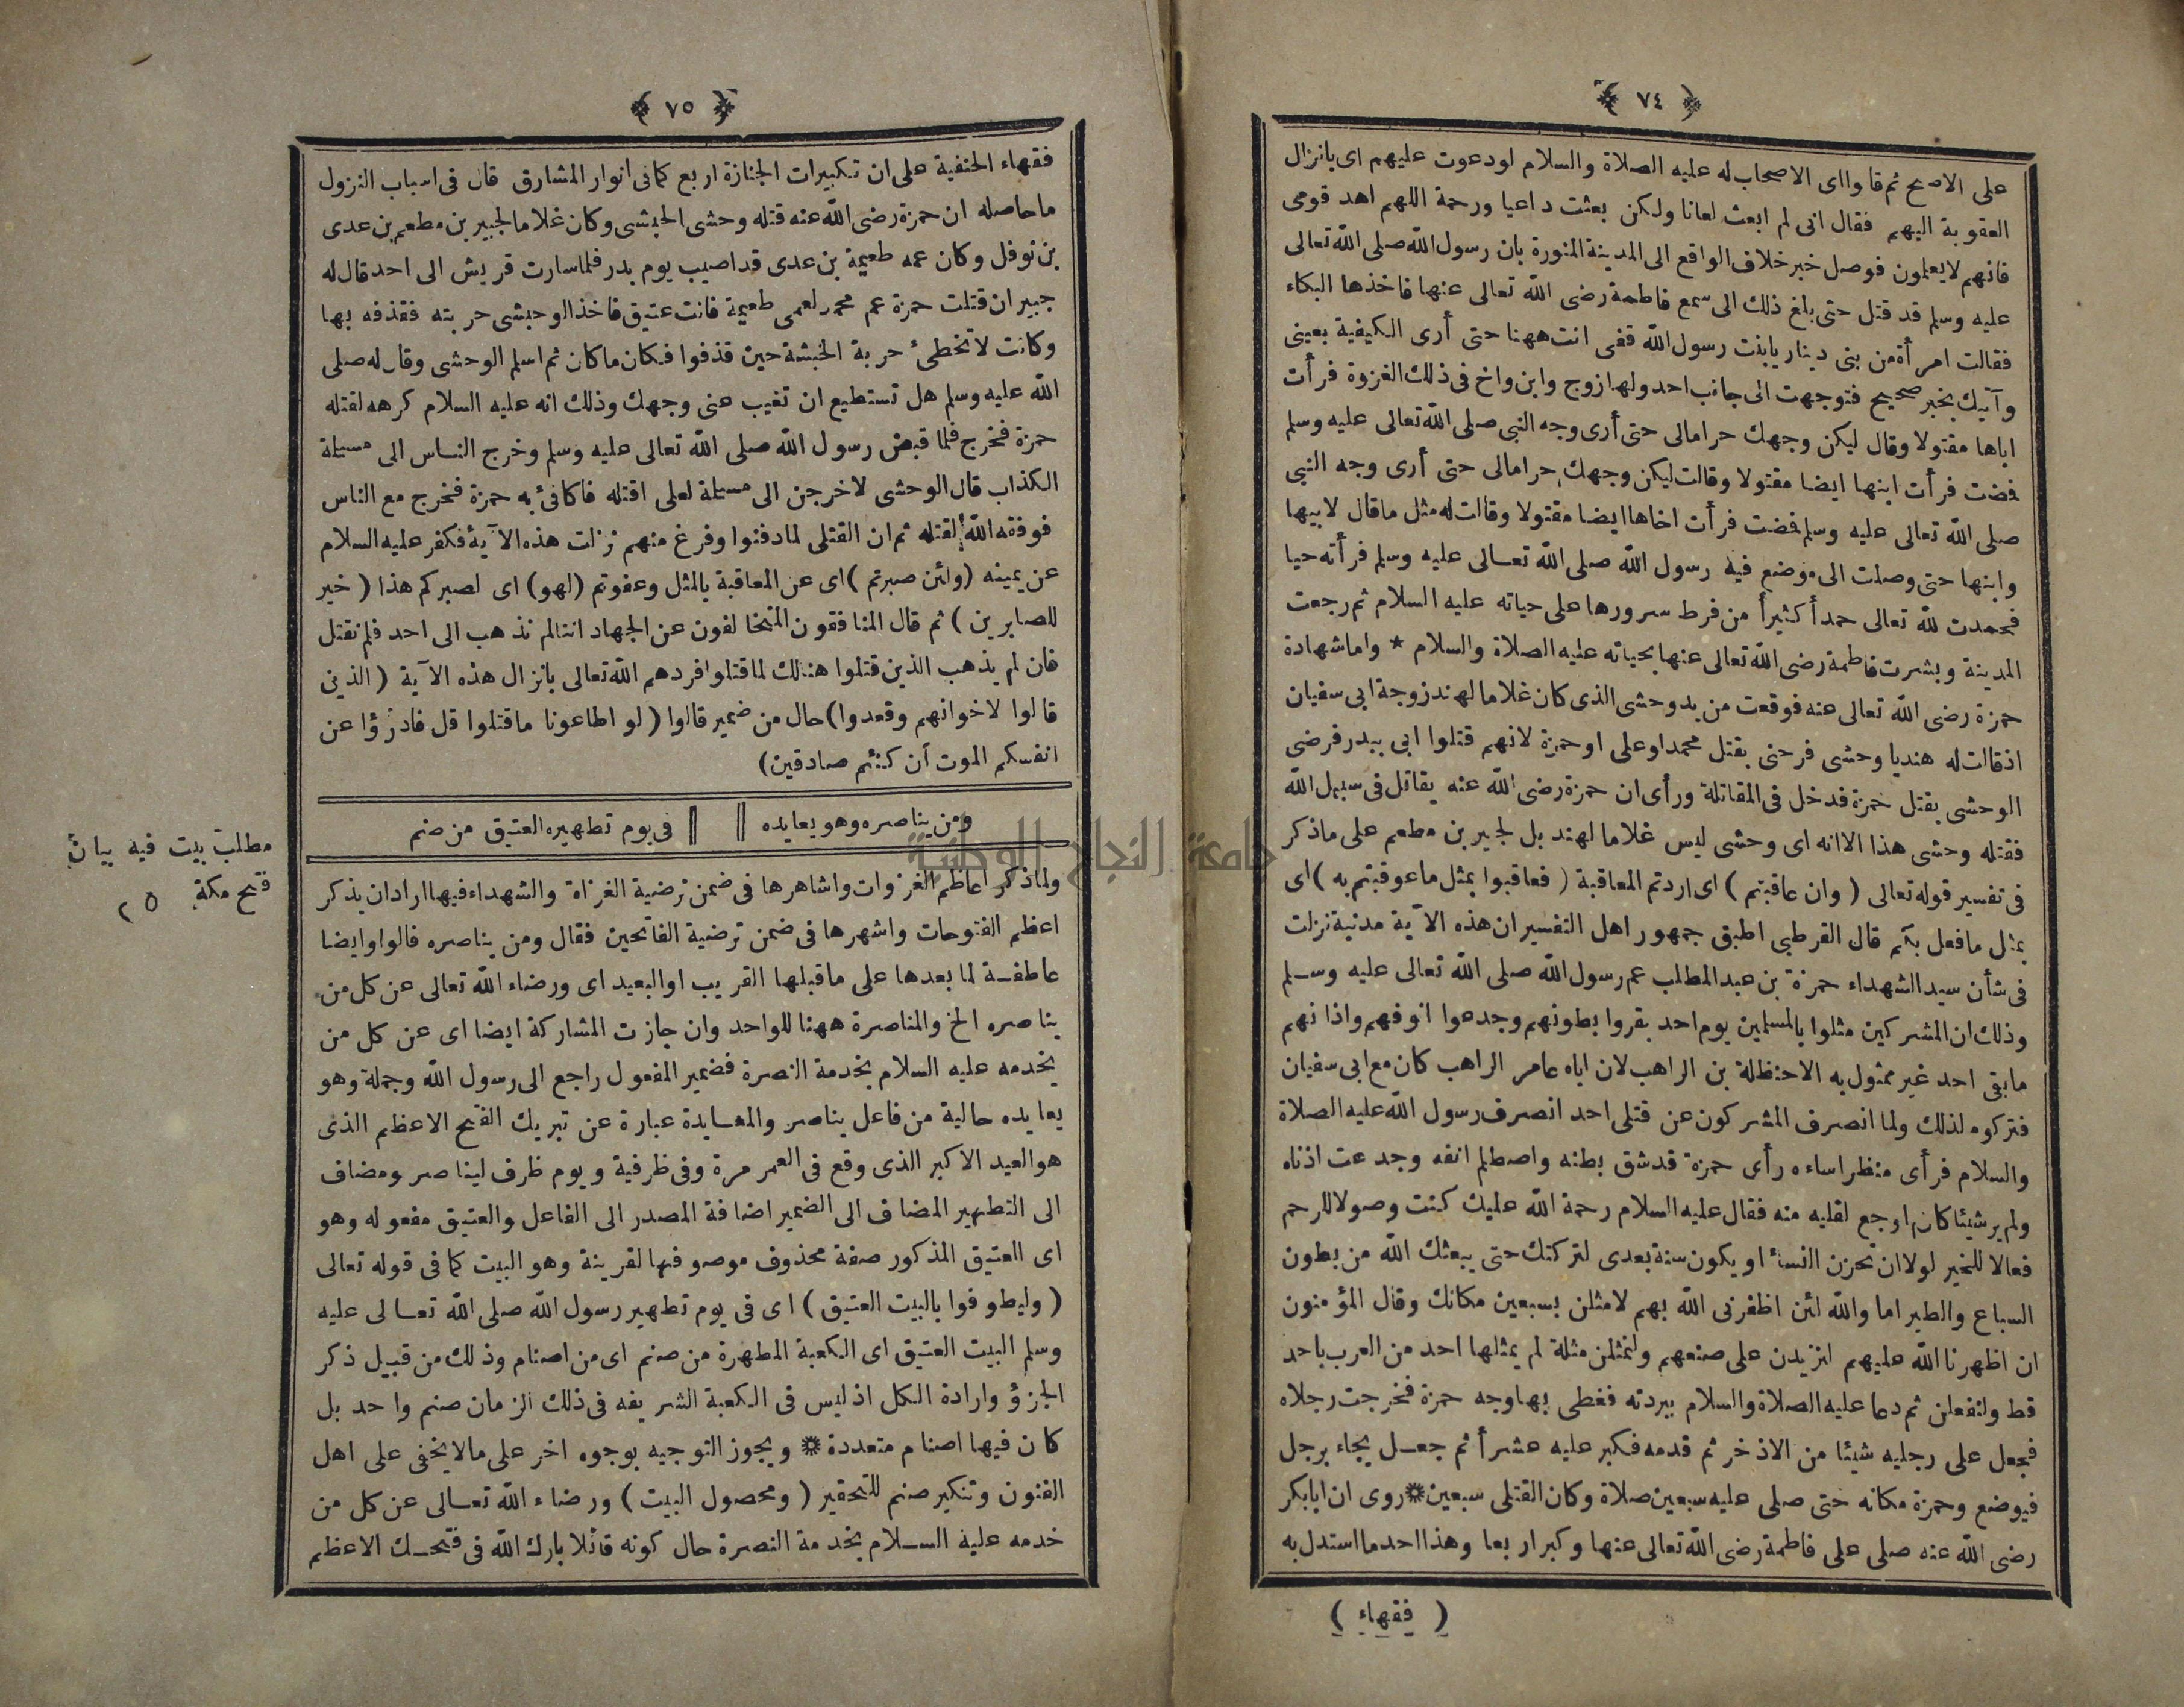 ﴿ ٧٤ ﴾
على الاصح ثم قالوا اى الاصحاب له عليه الصلاة والسلام لودعوت عليهم اى بانزال
العقوبة اليهم فقال انى لم ابعث لعانا ولكن بعثت داعيا ورحمة اللهم اهد قومى
فانهم لايعلمون فوصل خبر خلاف الواقع الى المدينة المنورة بان رسول الله صلى الله تعالى
عليه وسلم قد قتل حتى بلغ ذلك الى سمع فاطمة رضى الله تعالى عنها فاخذها البكاء
فقالت امرأة من بنى دينار يابنت رسول الله قفى انت ههنا حتى أرى الكيفية بعينى
وآتيك بخبر صحيح فتوجهت الى جانب احد ولها زوج وابن واخ فى ذلك الغزوة فرأت
اباها مقتولا وقال ليكن وجهك حرامالى حتى أرى وجه النبى صلى الله تعالى عليه وسلم
فضت فرأت ابنها ايضا مقتولا وقالت ليكن وجهك حرامالى حتى أرى وجه النبى
صلى الله تعالى عليه وسلم فضت فرأت اخاها ايضا مقتولا وقالت له مثل ماقال لابيها
وابنها حتى وصلت الى موضع فيه رسول الله صلى الله تعالى عليه وسلم فرأته حيا
فحمدت لله تعالى حمدأ كثيرأ من فرط سرورها على حياته عليه السلام ثم رجعت
المدينة وبشرت فاطمة رضى الله تعالى عنها بحياته عليه الصلاة والسلام * واما شهادة
حمزة رضى الله تعالى عنه فوقعت من يد وحشى الذى كان غلاما لهند زوجة ابى سفيان
اذقالت له هنديا وحشى فرحنى بقتل محمد اوعلى اوحمزة لانهم قتلوا ابى ببدر فرضى
الوحشى بقتل حمزة فدخل فى المقاتلة ورأى ان حمزة رضى الله عنه يقاتل فى سبيل الله
فقتله وحشى هذا الاانه اى وحشى ليس غلاما لهند بل لجبير بن مطعم على ماذكر
فى تفسير قوله تعالى ( وان عاقبتم ) اى اردتم المعاقبة ( فعاقبوا بمثل ماعوقبتم به ) اى
بمثل مافعل بكم قال القرطبى اطبق جمهور اهل التفسير ان هذه الآية مدنية نزلت
فى شأن سيد الشهداء حمزة بن عبد المطلب عم رسول الله صلى الله تعالى عليه وسلم
وذلك ان المشركين مثلوا بالمسلمين يوم احد بقروا بطونهم وجدعوا انوفهم واذانهم
مابقى احد غير ممثول به الاحنظلة بن الراهب لان اباه عامر الراهب كان مع ابى سفيان
فتركوه لذلك ولما انصرف المشركون عن قتلى احد انصرف رسول الله عليه الصلاة
والسلام فرأى منظرا ساءه رأى حمزة قدشق بطنه واصطلم انفه وجدعت اذناه
ولم ير شيئا كان اوجع لقلبه منه فقال عليه السلام رحمة الله عليك كنت وصولا للرحم
فعالا للخير لولا ان تحزن النساء او يكون سنة بعدى لتركتك حتى يبعثك الله من بطون
السباع والطير اما والله لئن اظفرنى الله بهم لامثلن بسبعين مكانك وقال المؤمنون
ان اظهرنا الله عليهم لنزيدن على صنعهم ولنمثلن مثلة لم يمثلها احد من العرب باحد
قط ولنفعلن ثم دعا عليه الصلاة والسلام ببردته فغطى بها وجه حمزة فخرجت رجلاه
فجعل على رجليه شيئا من الاذخر ثم قدمه فكبر عليه عشرأ ثم جعل يجاء برجل
فيوضع وحمزة مكانه حتى صلى عليه سبعين صلاة وكان القتلى سبعين * روى ان ابابكر
رضى الله عنه صلى على فاطمة رضى الله تعالى عنها وكبر اربعا وهذا احد ما استدل به
( فقهاء )
﴿ ٧٥ ﴾
فقهاء الحنفية على ان تكبيرات الجنازة اربع كمافى انوار المشارق قال فى اسباب النزول
ماحاصله ان حمزة رضى الله عنه قتله وحشى الحبشى وكان غلاما لجبير بن مطعم بن عدى
بن نوفل وكان عمه طعيمة بن عدى قداصيب يوم بدر فلما سارت قريش الى احد قال له
جبير ان قتلت حمزة عم محمد لعمى طعيمة فانت عتيق فاخذ الوحشى حربته فقذفه بها
وكانت لاتخطئ حربة الحبشة حين قذفوا فكان ماكان ثم اسلم الوحشى وقال له صلى
الله عليه وسلم هل تستطيع ان تغيب عنى وجهك وذلك انه عليه السلام كرهه لقتله
حمزة فخرج فلما قبض رسول الله صلى الله تعالى عليه وسلم وخرج الناس الى مسيلة
الكذاب قال الوحشى لاخرجن الى مسيلة لعلى اقتله فاكافئ به حمزة فخرج مع الناس
فوفقه الله لقتله ثم ان القتلى لمادفنوا وفرغ منهم نزلت هذه الآية فكفر عليه السلام
عن يمينه ( ولئن صبرتم ) اى عن المعاقبة بالمثل وعفوتم ( لهو ) اى لصبركم هذا ( خير
للصابرين ) ثم قال المنافقون المتخالفون عن الجهاد اننالم نذهب الى احد فلم نقتل
فان لم يذهب الذين قتلوا هنالك لما قتلوا فردهم الله تعالى بانزال هذه الآية ( الذين
قالوا لاخوانهم وقعدوا ) حال من ضمير قالوا ( لو اطاعونا ماقتلوا قل فادرؤا عن
انفسكم الموت ان كنتم صادقين )
ومن يناصره وهو يعايده ‖ ‖ فى يوم تطهيره العتيق من صنم
ولماذكر اعاظم الغزوات واشاهرها فى ضمن ترضية الغزاة والشهداء فيها ارادان يذكر
اعظم الفتوحات واشهرها فى ضمن ترضية الفاتحين فقال ومن يناصره فالواو ايضا
عاطفة لما بعدها على ماقبلها القريب اوالبعيد اى ورضاء الله تعالى عن كل من
يناصره الخ والمناصرة ههنا للواحد وان جازت المشاركة ايضا اى عن كل من
يخدمه عليه السلام بخدمة النصرة فضمير المفعول راجع الى رسول الله وجملة وهو
يعايده حالية من فاعل يناصر والمعايدة عبارة عن تبريك الفتح الاعظم الذى
هو العيد الاكبر الذى وقع فى العمر مرة وفى ظرفية ويوم ظرف ليناصر ومضاف
الى التطهير المضاف الى الضمير اضافة المصدر الى الفاعل والعتيق مفعوله وهو
اى العتيق المذكور صفة محذوف موصوفها لقرينة وهو البيت كما فى قوله تعالى
( وليطوفوا بالبيت العتيق ) اى فى يوم تطهير رسول الله صلى الله تعالى عليه
وسلم البيت العتيق اى الكعبة المطهرة من صنم اى من اصنام وذلك من قبيل ذكر
الجزؤ وارادة الكل اذليس فى الكعبة الشريفه فى ذلك الزمان صنم واحد بل
كان فيها اصنام متعددة * ويجوز التوجيه بوجوه اخر على مالايخفى على اهل
الفنون وتنكير صنم للتحقير ( ومحصول البيت ) ورضاء الله تعالى عن كل من
خدمه عليه السلام بخدمة النصرة حال كونه قائلا بارك الله فى فتحك الاعظم
مطلب بيت فيه بيان
فتح مكة ٢٥
جامعة النجاح الوطنية